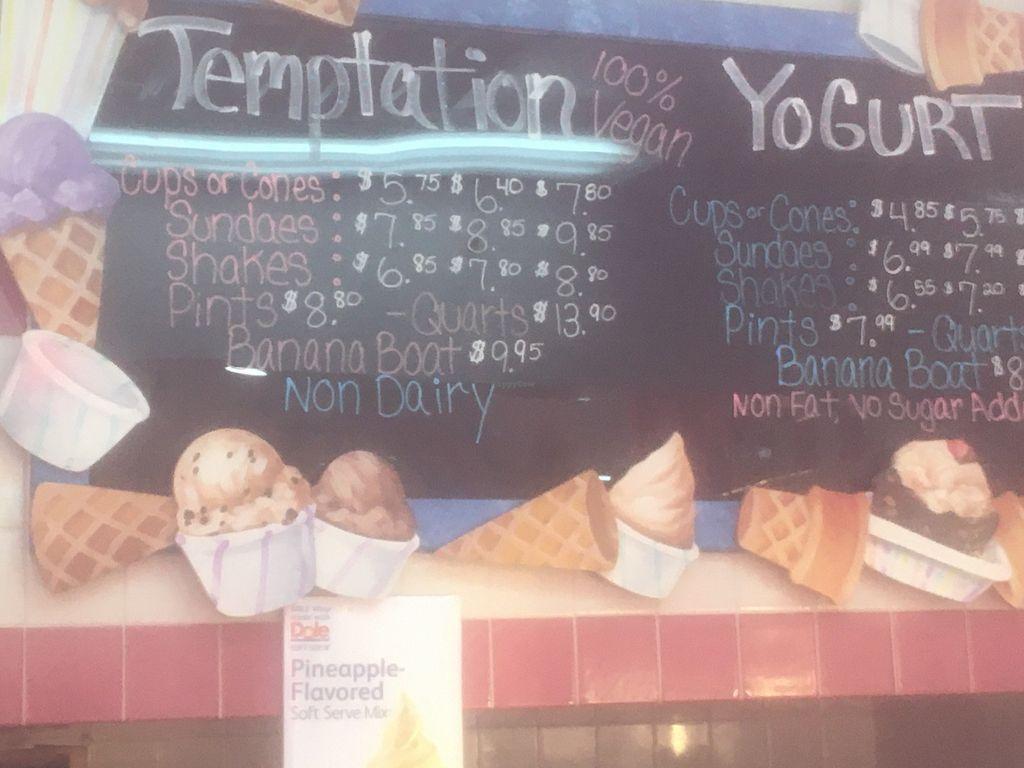 Temptation
100%
Vegan
Cups or Cones: $5.75 $6.40 $7.80
Sundaes: $7.85 $8.85 $9.85
Shakes: $6.85 $7.80 $8.80
Pints $8.80 - Quarts $13.90
Banana Boat $9.95
Non Dairy
YOGURT
Cups or Cones: $4.85 $5.75 $
Sundaes: $6.99 $7.99
Shakes: $6.55 $7.20
Pints $7.99 - Quarts
Banana Boat $8
Non Fat, No Sugar Add
Dole
Pineapple-
Flavored
Soft Serve Mix